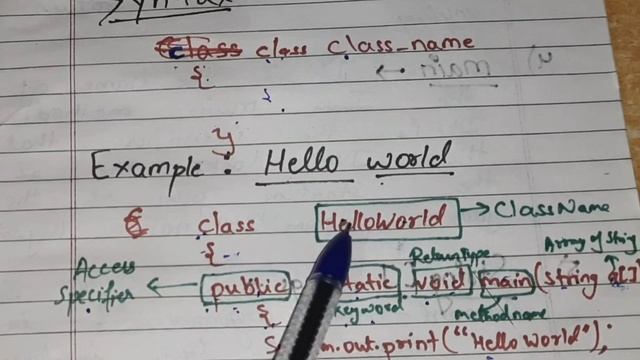 Syntax
class class class_name
{
}
Example : Hello world
class HelloWorld → ClassName
{
Return type Array of string
Access Specifier ← public static void main (string a[])
{ keyword method name
S m.out.print("Hello World");